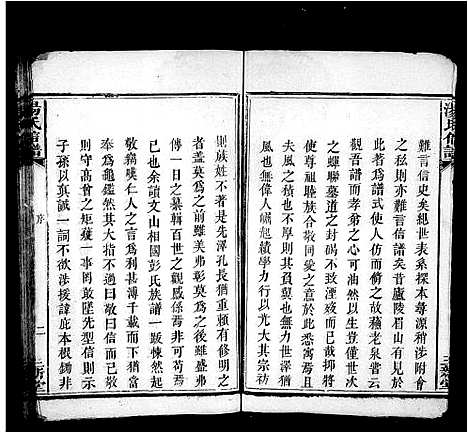 湯氏信譜
難言信史矣絕世表系探本尋源稍涉附會
之私則亦難言信譜矣昔廬陵眉山有見於
此創爲譜式後人仿而效之故穪老泉嘗云
觀吾譜而孝弟之心可油然生世不觀世系
之蟬聯墓道之封碣不致湮滅而已哉抑將
尊祖睦族合敬同愛之意於此悉寓焉且
夫風之積也不厚則其負翼也無力世之積
也無偉人崛起績學力行以光大其宗祊
則族姓不著是非之先澤孔長猶重賴有修明之
者蓋莫爲之前雖美弗彰莫爲之後雖盛弗
傳一日之纂輯百世之觀感係焉非可苟焉
已也余讀文山相彭氏族譜一跋悚然起
敬藹藹矣仁人之言爲利甚溥千載而下猶當
奉爲龜鑑然其大指不過曰敬曰信而已敬
則守高曾之矩矱一事罔敢墜先型信則示
子孫以真誠一詞不欲涉援諱庇本根鋤非
湯氏信譜
序
二